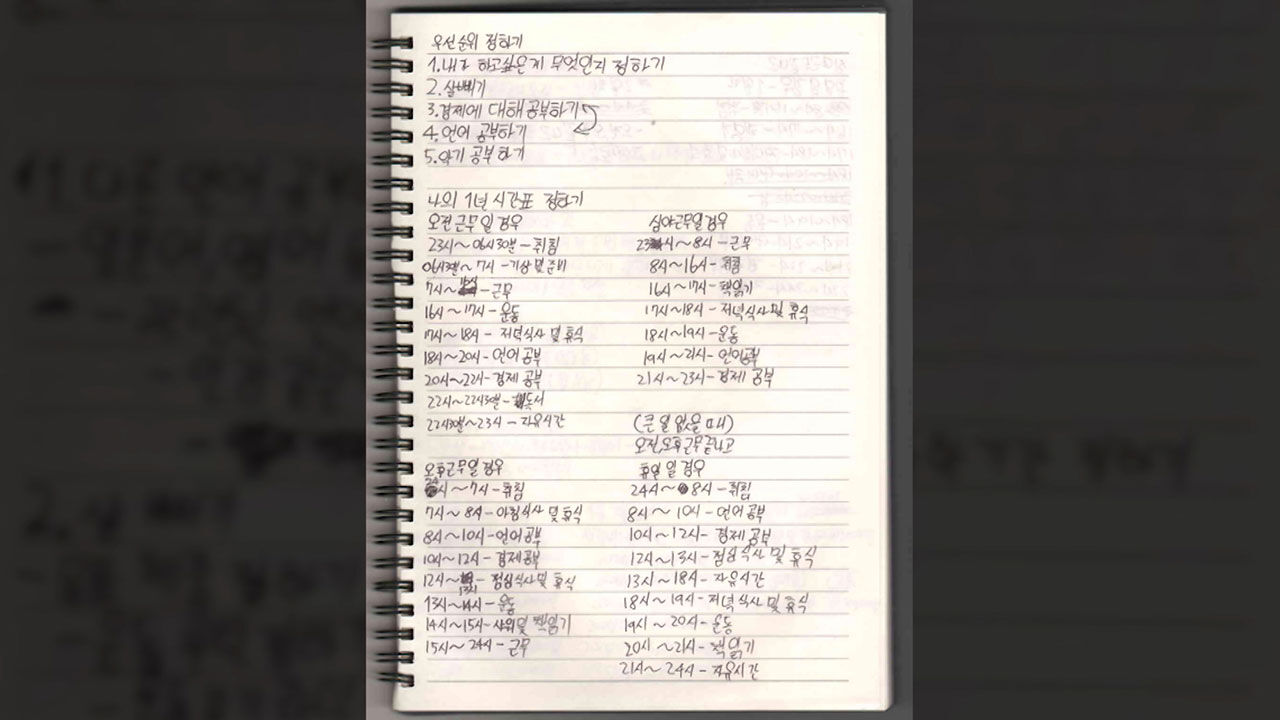 우선순위 정하기
1. 내가 하고싶은게 무엇인지 정하기
2. 살빼기
3. 경제에 대해 공부하기
4. 언어 공부하기
5. 악기 공부하기
나의 1년 시간표 정하기
오전근무일 경우
23시~06시30분 - 취침
06시30분~7시 - 기상 및 준비
7시~ - 근무
16시~17시 - 운동
17시~18시 - 저녁식사 및 휴식
18시~20시 - 언어공부
20시~22시 - 경제 공부
22시~22시30분 - 독서
22시30분~23시 - 자유시간
오후근무일 경우
24시~7시 - 취침
7시~8시 - 아침식사 및 휴식
8시~10시 - 언어공부
10시~12시 - 경제공부
12시~13시 - 점심식사 및 휴식
13시~14시 - 운동
14시~15시 - 샤워 및 책읽기
15시~24시 - 근무
심야근무일 경우
23시~8시 - 근무
8시~16시 - 취침
16시~17시 - 책읽기
17시~18시 - 저녁식사 및 휴식
18시~19시 - 운동
19시~21시 - 언어공부
21시~23시 - 경제 공부
(큰 일 없을 때)
오전,오후근무끝나고
휴일 일 경우
24시~8시 - 취침
8시~10시 - 언어공부
10시~12시 - 경제공부
12시~13시 - 점심식사 및 휴식
13시~18시 - 자유시간
18시~19시 - 저녁식사 및 휴식
19시~20시 - 운동
20시~21시 - 책읽기
21시~24시 - 자유시간